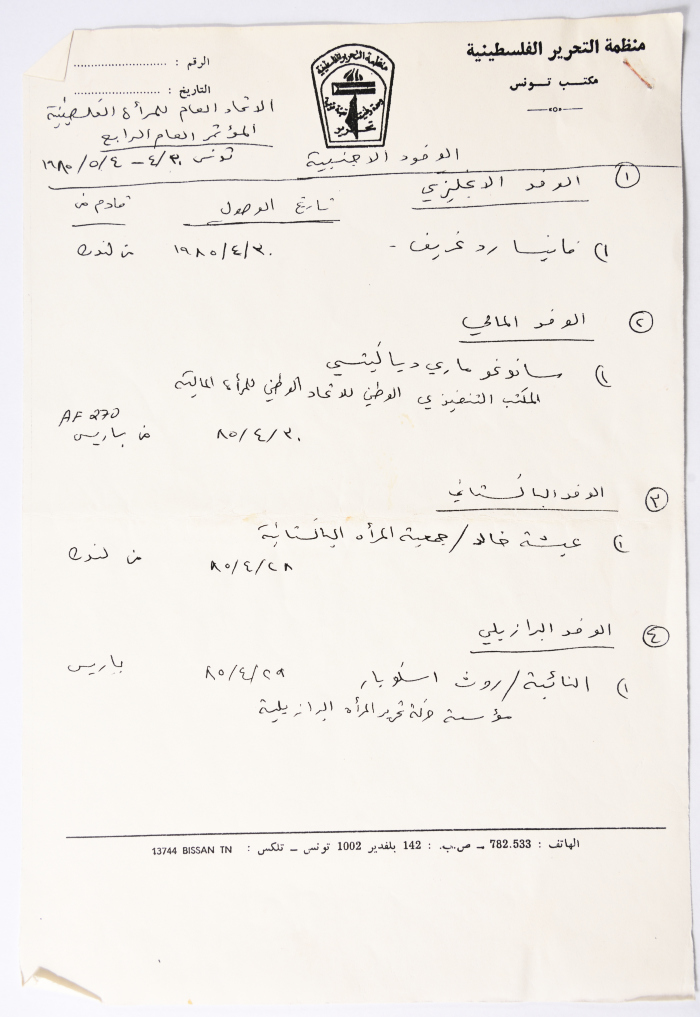 منظمة التحرير الفلسطينية
مكتب تونس
الرقم : ..............................
التاريخ : ..............................
منظمة التحرير الفلسطينية
وحدة وطنية
تعبئة قومية
تحرير
الاتحاد العام للمرأة الفلسطينية
المؤتمر العام الرابع
تونس ٤/٣٠ – ١٩٨٥/٥/٤
الوفود الاجنبية
١ الوفد الانجليزي
تاريخ الوصول
قادم من
١) فانيسا رد غريف -
١٩٨٥/٤/٣٠
من لندن
٢ الوفد المالي
١) سانوغو ماري دياكيتسي
المكتب التنفيذي الوطني للاتحاد الوطني للمرأة المالية
AF 270
٨٥/٤/٣٠
من باريس
٣ الوفد الباكستاني
١) عيشة خالد / جمعية المرأة الباكستانية
٨٥/٤/٢٨
من لندن
٤ الوفد البرازيلي
١) النائبة / روث اسكوبار
٨٥/٤/٢٩
باريس
مؤسسة حركة تحرير المرأة البرازيلية
الهاتف : 782.533 – ص.ب. : 142 بلفدير 1002 تونس – تلكس : 13744 BISSAN TN